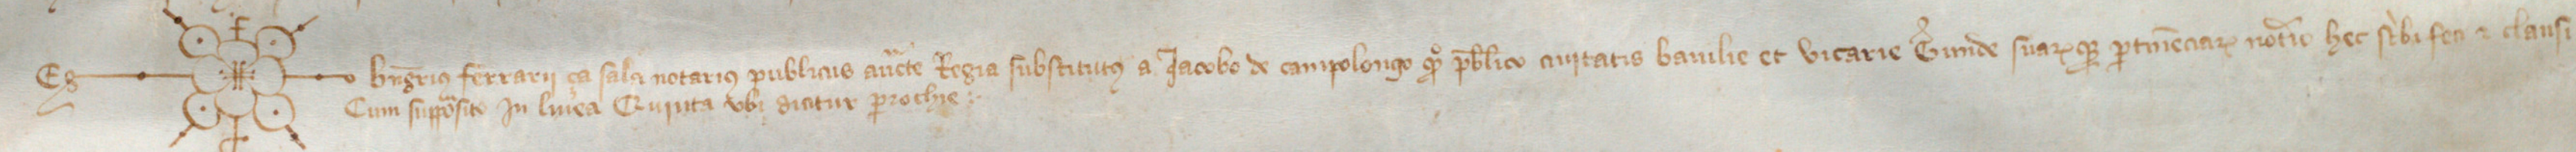 Eg o bng̅riꝰ ferrarii ça sala notariꝰ publicus auc̅te Regia substitutꝰ a Jacobo de campolongo qͦ pb̅lico ciuitatis baiulie et vicarie Gȇrunde suarꝝ ꝑtine̅ciarꝝ not̅io hec sc̓bi feci ⁊ clausi
Cum supp̅osito In linea Quinta vbi dicitur ꝑrochie :